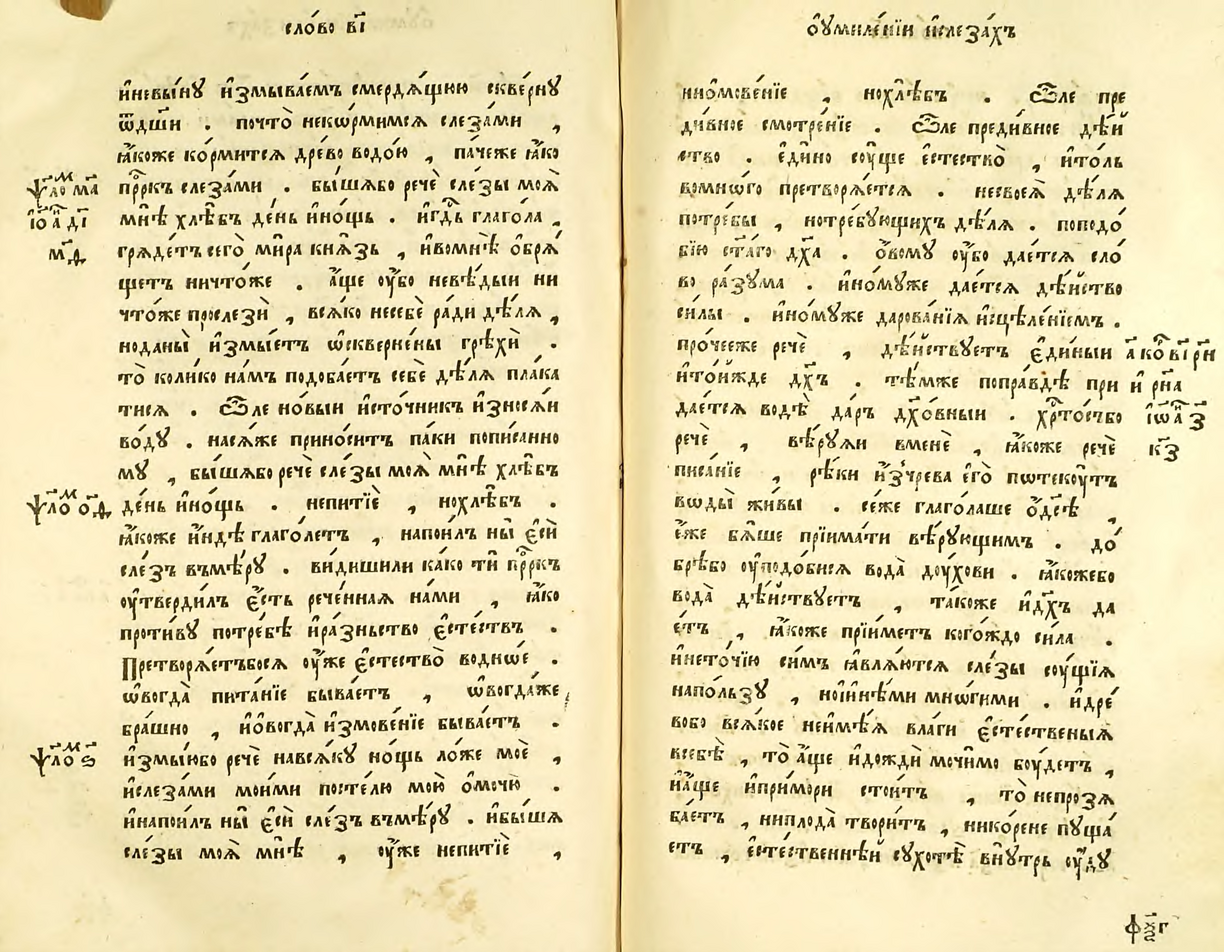 сло́во в҃і
иневы́нꙋ измыва́емъ смердѧ́щюю скве́рнꙋ
ѿдш҃и . почто̀ некѡ́рмимсѧ слеза́ми ,
ꙗ́коже ко́рмитсѧ древо водо́ю , па́чеже ꙗ́ко
прⷪ҇ркъ слеза́ми . бы́шѧбо речѐ сле́зы моѧ̀
мнѣ̀ хлѣ́бъ де́нь ино́щь . игдⷭ҇ь глаго́ла ,
грѧде́тъ сего̀ ми́ра кнѧ́зь , ивомнѣ̀ обрѧ́
щетъ ничто́же . а́ще ѹ҆́бо невѣ́дыи ни
что́же прослезѝ , всѧ́ко несебѐ ра́ди дѣ́лѧ ,
ноданы̀ измы́етъ ѡскверне́ны грѣ́хи .
то̀ коли́ко на́мъ подоба́етъ себѐ дѣ́лѧ плака
тисѧ . Ѽле но́выи исто́чникъ износѧ́и
во́дꙋ . насѧ́же прино́ситъ па́ки пописанно
мꙋ , бы́шѧбо речѐ сле́зы моѧ̀ мнѣ̀ хлѣ́бъ
де́нь ино́щь . непитїѐ , нохлѣ́бъ .
ꙗ́коже и́ндѣ глаго́летъ , напои́лъ ны̀ есѝ
сле́зъ въмѣ́рꙋ . ви́дишили ка́ко тѝ прⷪ҇ркъ
ѹтверди́лъ е́сть рече́ннаѧ на́ми , ꙗ́ко
проти́вꙋ потре́бѣ ира́зньство есте́ствъ .
Претворѧ́етъбосѧ ѹ҆́же естество̀ во́дное .
ѡ́вогда̀ пита́нїе быва́етъ , ѡвогда́же ,
бра́шно , ио́вогда̀ измове́нїе быва́етъ .
измы́юбо речѐ навсѧ́кꙋ но́щь ло́же моѐ ,
ислеза́ми мои́ми посте́лю мою̀ омочю̀ .
инапои́лъ ны̀ есѝ сле́зъ въмѣ́рꙋ . ибы́шѧ
сле́зы моѧ̀ мнѣ̀ , ѹ҆́же непитїѐ ,
ѱало́м ма
іѡа҃ ді
м҃д
ѱало́м о҃д
ѱало́м ѕ
оумиле́нїи ислеза́хъ
ниомове́нїе , нохлѣ́бъ . Ѽле пре
ди́вное смотре́нїе . Ѽле преди́вное дѣ́й
ство . еди́но сѹ́ще естество̀ , ито́ль
вомнѡ́го претворѧ́етсѧ . несвоеѧ̀ дѣ́лѧ
потре́бы , нотре́бꙋющихъ дѣ́лѧ . поподо́
бїю ст҃а́го дх҃а . о́вомꙋ ѹ҆́бо дае́тсѧ сло́
во ра́зꙋма . ино́мꙋже дае́тсѧ дѣ́йство
си́лы . ино́мꙋже дарова́нїѧ исцѣле́нїемъ .
про́чееже речѐ , дѣ́йствꙋетъ еди́ныи
ито́йжде дх҃ъ . тѣ́мже попра́вдѣ при
дае́тсѧ водѣ̀ да́ръ дх҃о́вныи . хрⷭ҇то́събо
речѐ , вѣ́рꙋѧи вменѐ , ꙗ́коже речѐ
писа́нїе , рѣ́ки изчре́ва его̀ пѡтекѹ́тъ
вѡды̀ жи́вы . се́же глаго́лаше о҆дс҃ѣ ,
е́же бѧ́ше прїима́ти вѣ́рꙋющимъ . до́
брѣбо ѹподо́бисѧ вода̀ дѹ́хови . ꙗ́кожебо
вода̀ дѣ́йствꙋетъ , та́коже идх҃ъ да
е́тъ , ꙗ́коже прїи́метъ кого́ждо си́ла .
инето́чїю си́мъ ꙗвлѧ́ютсѧ сле́зы сѹ́щїѧ
напо́льзꙋ , ноии́нѣми мно́гими . идре́
вобо всѧ́кое неимѣ́ѧ вла́ги есте́ственыѧ
всебѣ̀ , то̀ а́ще идождѝ мочи́мо бѹ́детъ ,
иа́ще ипримори стои́тъ , то̀ непрозѧ
ба́етъ , ниплода̀ твори́тъ , нико́рене пꙋща
етъ , есте́ственнѣй сꙋхотѣ̀ внꙋ́трь сѹ́дꙋ
а҃ ко́ в҃і рн
и рн҃а
іѡа҃ з
к҃з
фѯ҃г